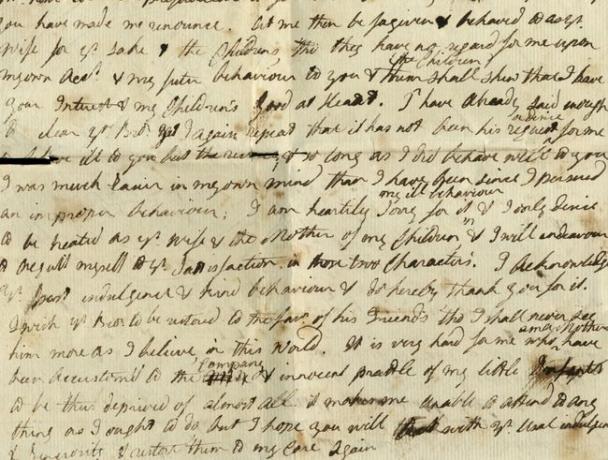 you have made me renounce. let me then be forgiven & behaved to as yr.
Wife for yr. sake & the Childrens tho they have no regard for me upon
my own Acct. & my future behaviour to you & the Children them shall shew that I have
your Interest & my Children's good at Heart. I have Already said enough
to clear yr. Bror. yet I again repeat that it has not been his request or advice for me
to behave ill to you but the &. so long as I did behave well to you
I was much Easier in my own mind than I have been since I pursued
an improper behaviour; I am heartily Sorry for my ill behaviour & I only desire
to be treated as yr. Wife & the Mother of my Children & I will endeavour
to acquitt myself to yr. Satisfaction in those two Characters. I Acknowledge
yr. past indulgence & kind behaviour & do hereby thank you for it.
I wish yr. Bror. to be restored to the favr. of his Friends tho I shall never see
him more as I believe in this World. It is very hard for me who am a Mother, have
been Accustom'd to the Company & innocent prattle of my little Infants
to be thus deprived of almost all it makes me unable to attend to any
thing as I ought to do but I hope you will with yr. usual indulgence
& Generosity & restore them to my Care Again